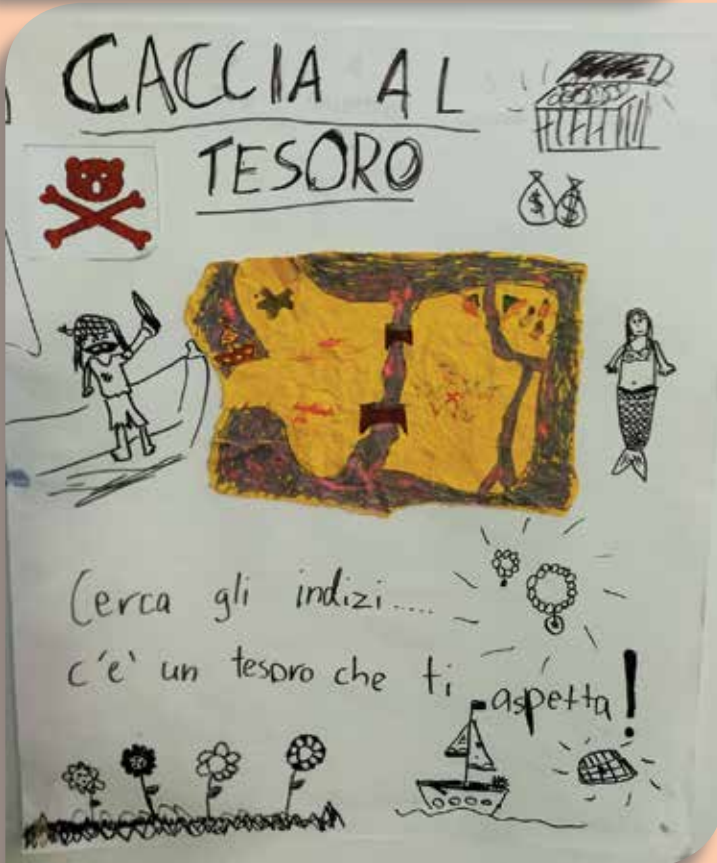 CACCIA AL
TESORO
$ $
Cerca gli indizi....
c'e' un tesoro che ti
aspetta!